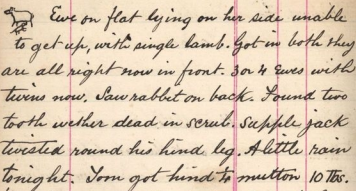 Ewe on flat lying on her side unable
to get up, with single lamb. Got in both they
are all right now in front. 3 or 4 Ewes with
twins now. Saw rabbit on back. Found two
tooth wether dead in scrub. Supple jack
twisted round his hind leg. A little rain
tonight. Tom got hind to mutton 10 lbs.